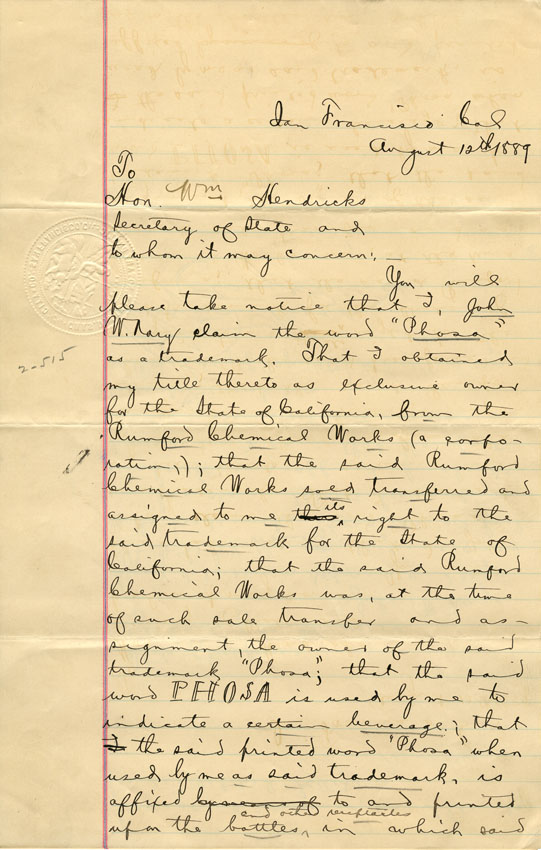 San Francisco Cal
August 12th 1889
To
Hon. Wm Hendricks
Secretary of State and
to whom it may concern: —
You will
please take notice that I, John
W. Nary claim the word "Phosa"
as a trademark. That I obtained
my title thereto as exclusive owner
for the State of California, from the
Rumford Chemical Works (a corpo-
ration,); that the said Rumford
Chemical Works sold transferred and
assigned to me its right to the
said trademark for the State of
California; that the said Rumford
Chemical Works was, at the time
of such sale transfer and as-
signment, the owner of the said
trademark "Phosa"; that the said
word PHOSA is used by me to
indicate a certain beverage; that
I the said printed word "Phosa" when
used by me as said trademark, is
affixed by means of to and printed
and other receptacles
upon the bottles, in which said
2-515